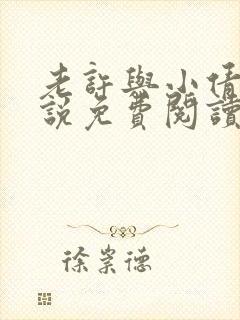 老許與小倩
說免費閱讀
徐崇德